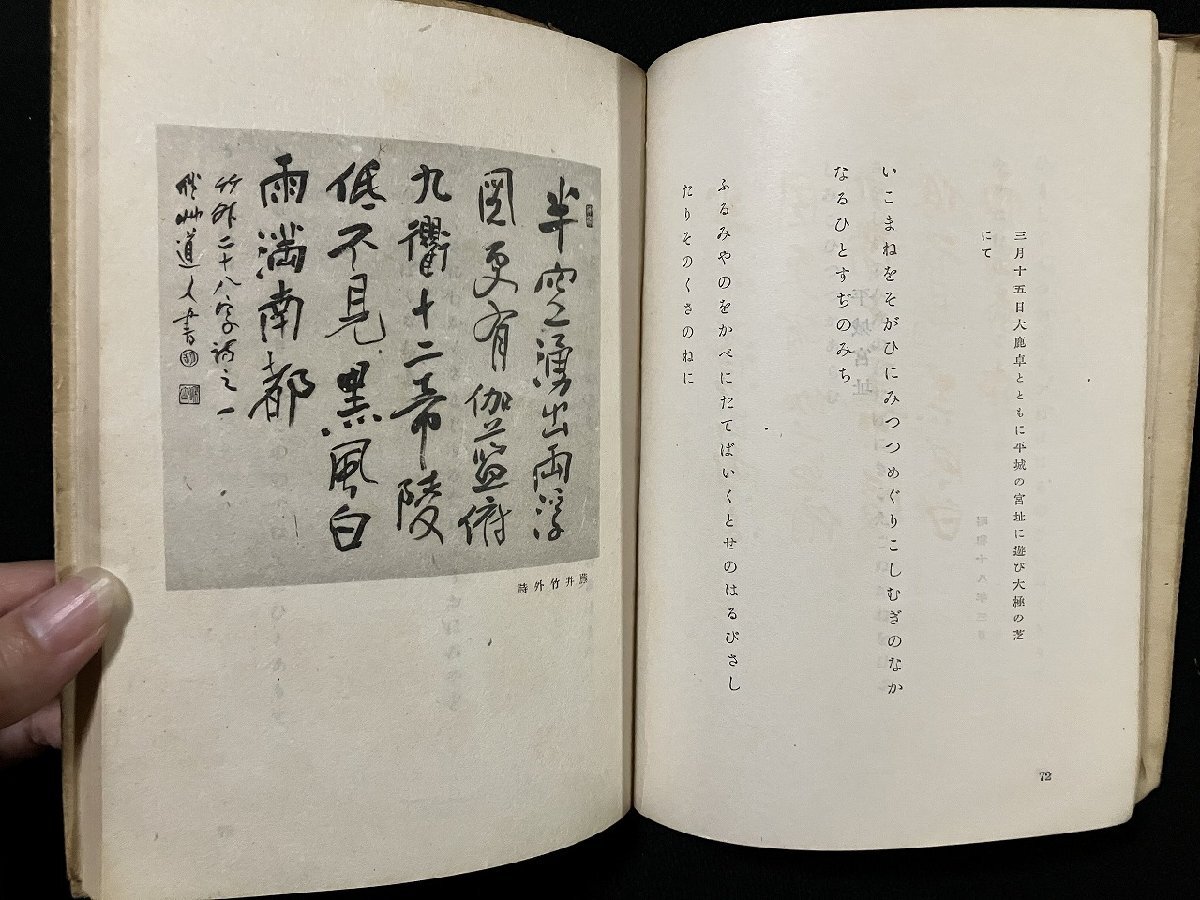 三月十五日大鹿卓とともに平城の宮址に遊び大極の芝
にて
いこまねをそがひにみつつめぐりこしむぎのなか
なるひとすぢのみち
ふるみやのをかべにたてばいくとせのはるびさし
たりそのくさのねに
72
半空湧出兩浮
圖更有伽藍俯
九衢十二帝陵
低不見黒風白
雨満南都
竹外二十八字詩之一
秋艸道人書
藤井竹外詩